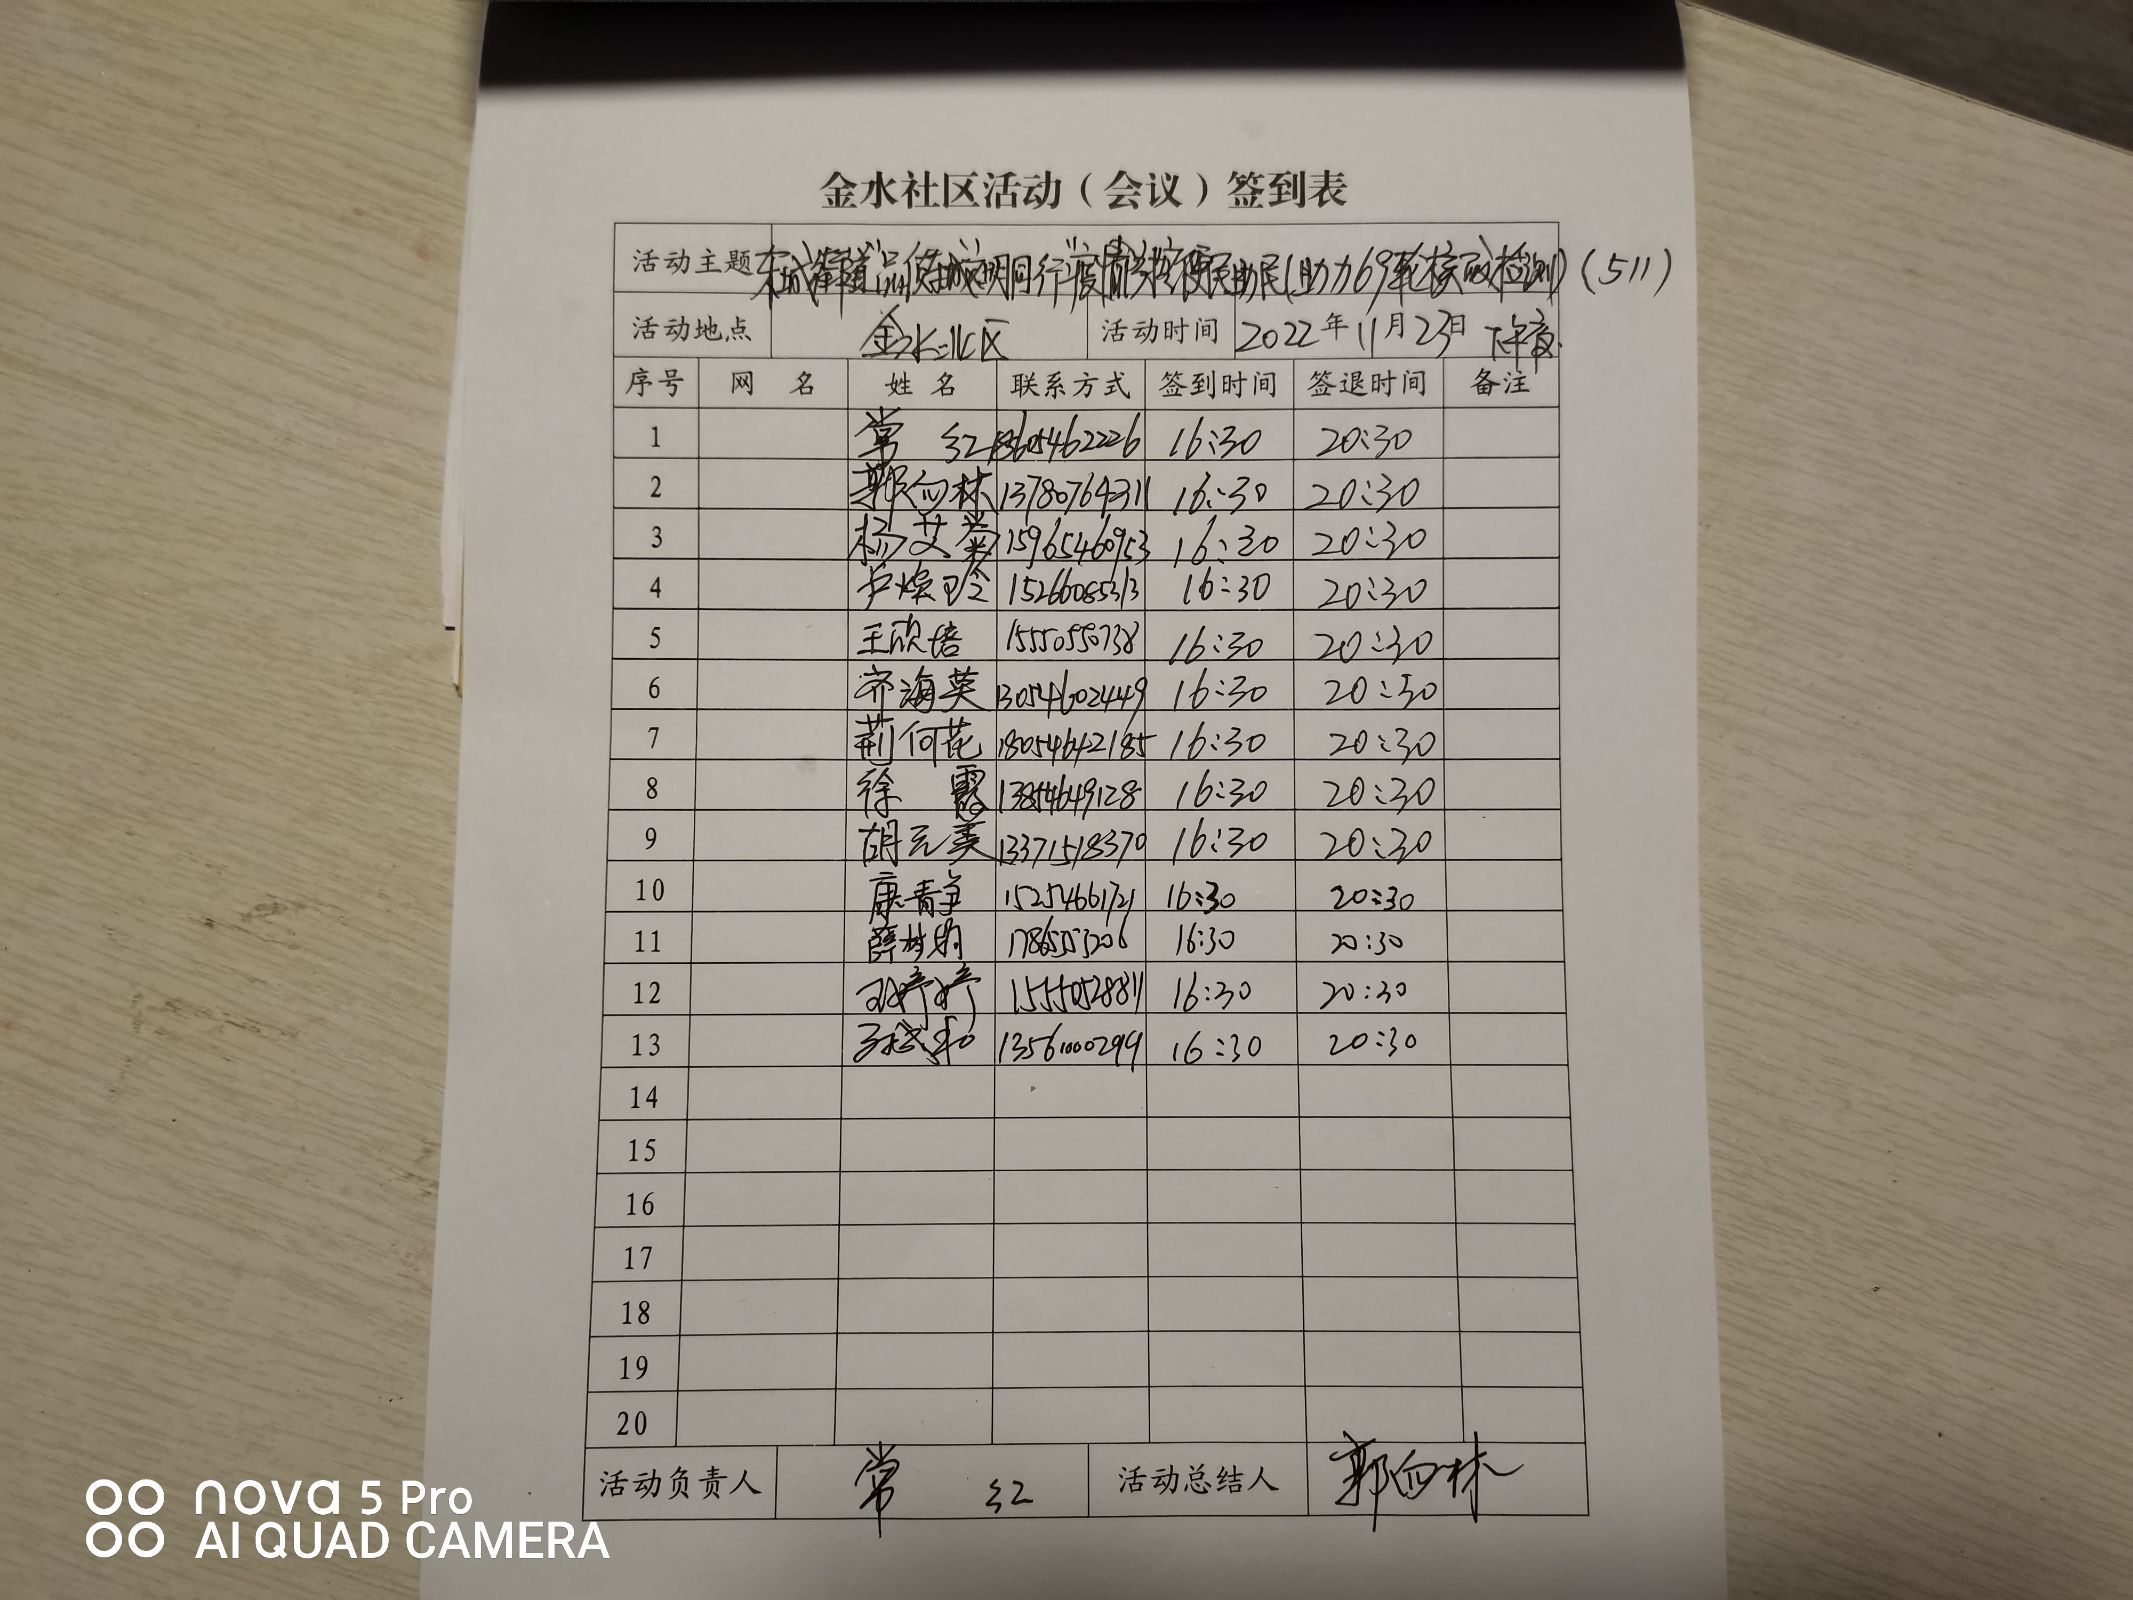 金水社区活动（会议）签到表
活动主题 东城街道"品质东城文明同行"疫情防控便民助民(助力69轮核酸检测)(511)
活动地点 金水北区 活动时间 2022年11月23日 下午夜
序号 网 名 姓 名 联系方式 签到时间 签退时间 备注
1 常 红 13605462226 16:30 20:30
2 郭向林 13780764311 16:30 20:30
3 杨艾菊 15965460953 16:30 20:30
4 15266085313 16:30 20:30
5 王欣培 15550550738 16:30 20:30
6 齐海英 13054602449 16:30 20:30
7 荆何花 18054642185 16:30 20:30
8 徐 霞 13854649128 16:30 20:30
9 胡元美 13371518370 16:30 20:30
10 康静 15254661721 16:30 20:30
11 薛 16:30 20:30
12 婷婷 15550528811 16:30 20:30
13 13561000299 16:30 20:30
14
15
16
17
18
19
20
活动负责人 常 红 活动总结人 郭向林
nova 5 Pro
AI QUAD CAMERA